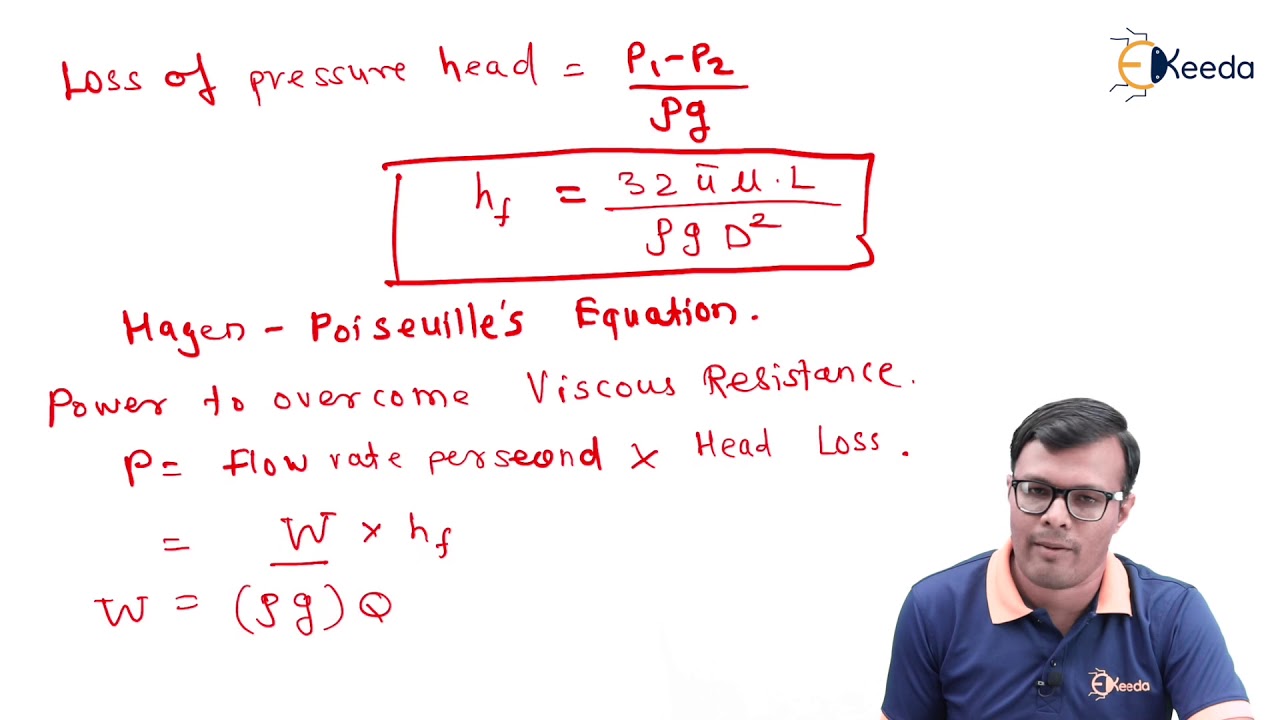 Loss of pressure head = P₁-P₂ / ρg
EKeeda
h_f = 32 ū μ . L / ρ g D²
Hagen - Poiseuille's Equation.
Power to overcome Viscous Resistance.
P = flow rate per second x Head Loss.
= W x h_f
W = (ρg) Q
EKeeda